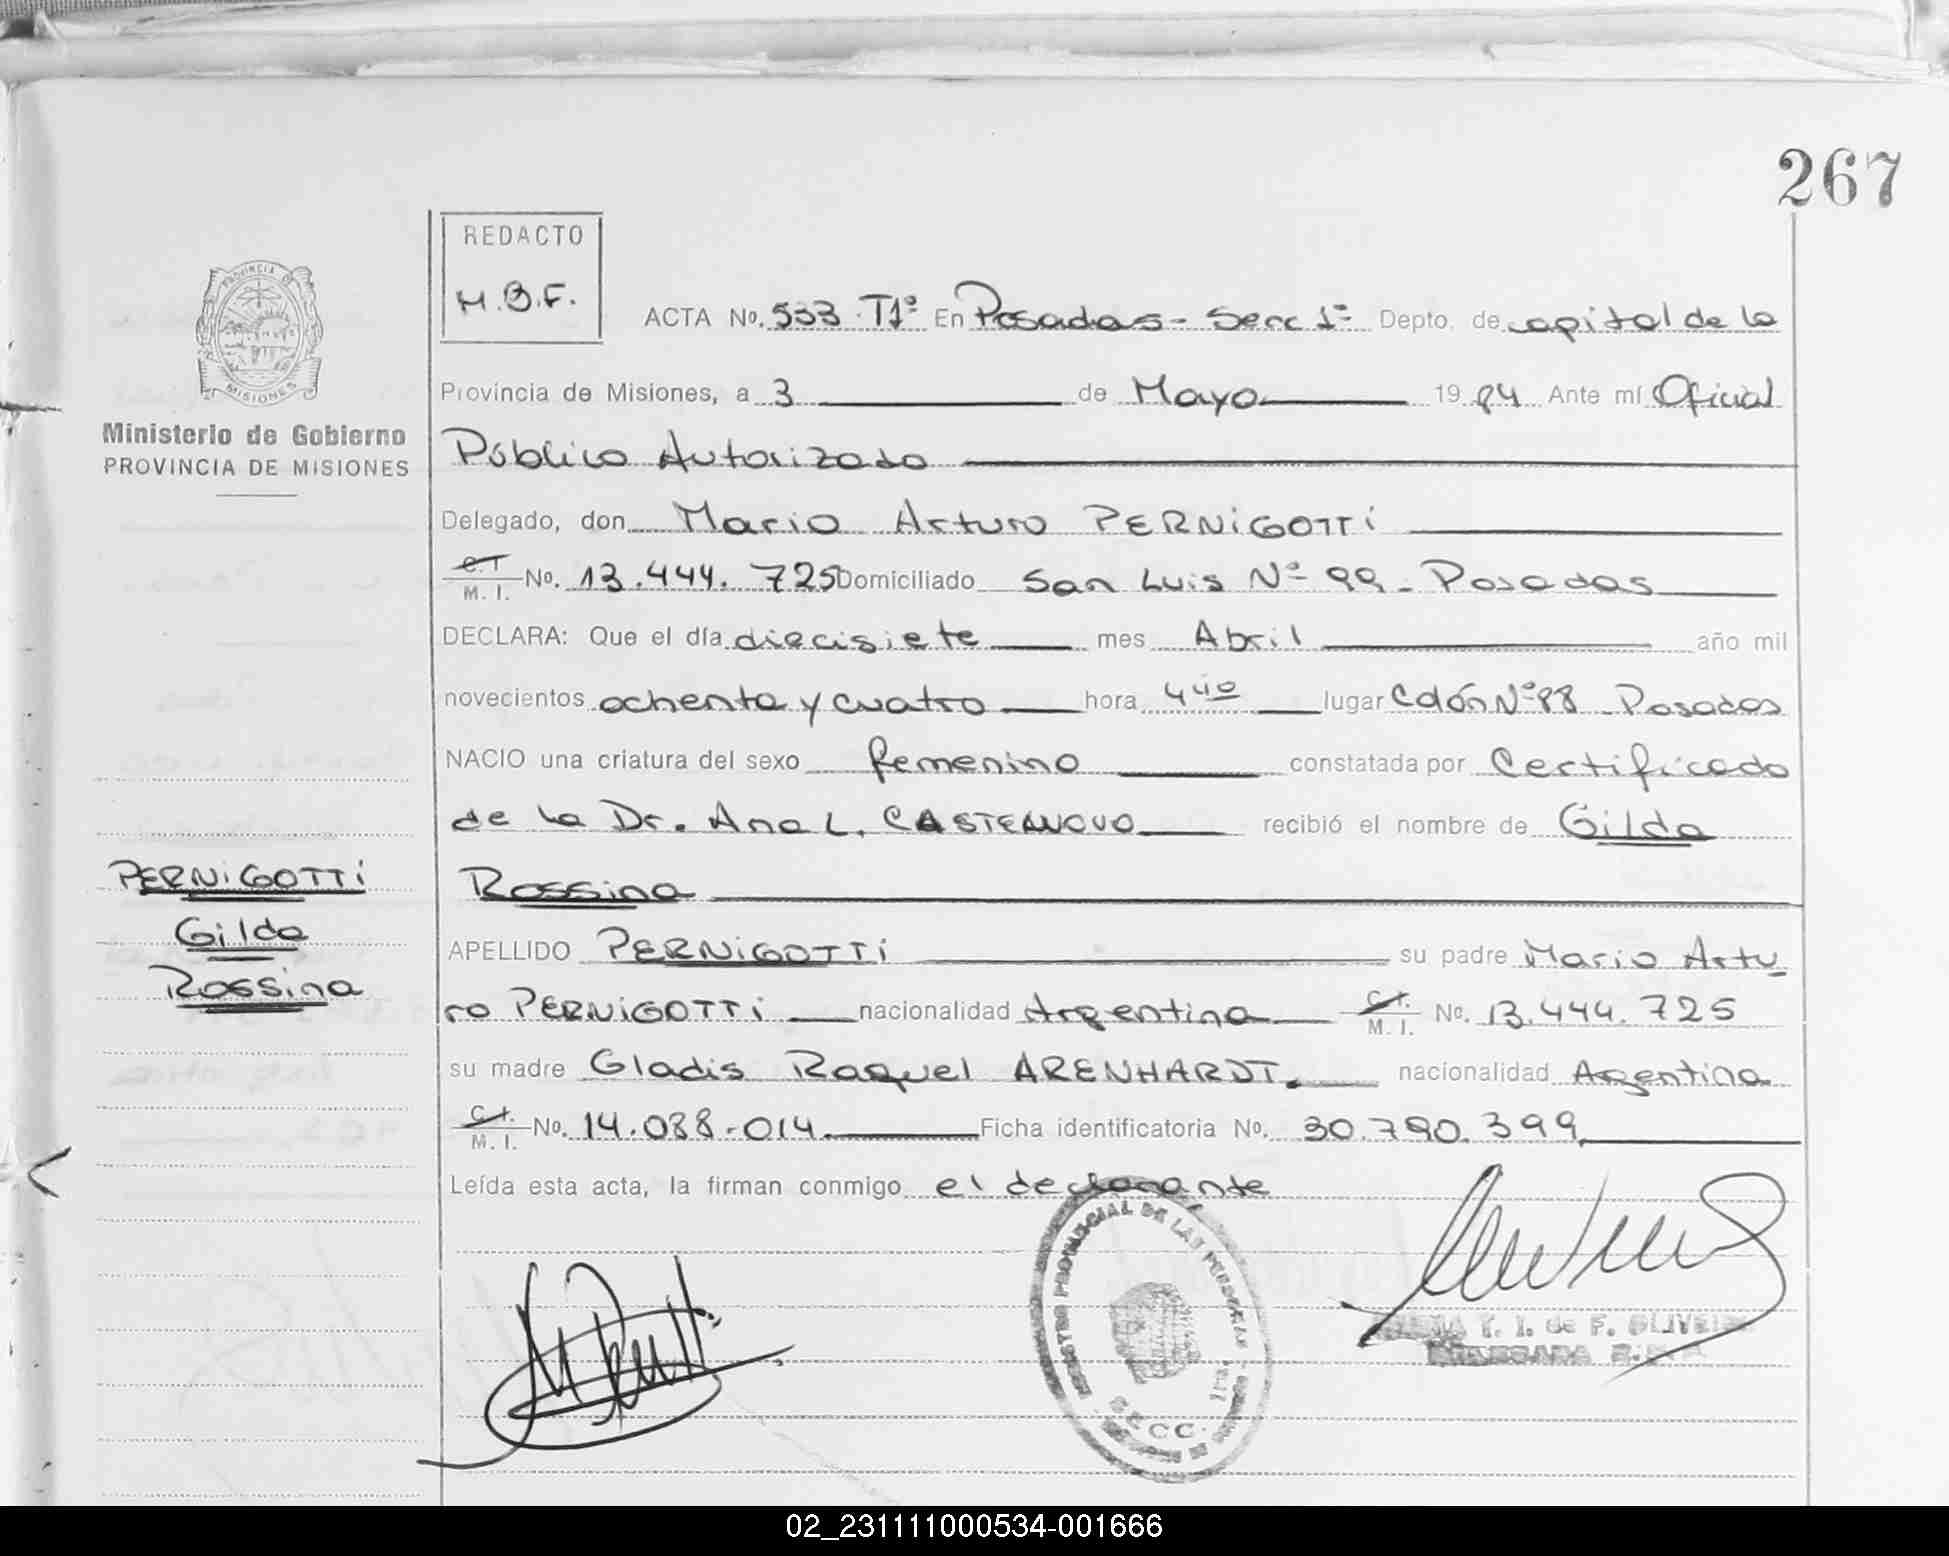 267
REDACTO
M.B.F.
ACTA No. 533 T1º En Posadas - Secc 1º Depto. de capital de la
PROVINCIA DE
MISIONES
Ministerio de Gobierno
PROVINCIA DE MISIONES
Provincia de Misiones, a 3 de Mayo 1984 Ante mí Oficial
Público Autorizado
Delegado, don Mario Arturo PERNiGOTTi
C.I. M. I. No. 13.444.725 Domiciliado San Luis Nº 99 - Posadas
DECLARA: Que el día diecisiete mes Abril año mil
novecientos ochenta y cuatro hora 4 lugar Colón Nº 88 Posadas
NACIO una criatura del sexo femenino constatada por Certificado
de la Dr. Ana L. CASTELNOVO recibió el nombre de Gilda
Rossina
PERNiGOTTi
Gilda
Rossina
APELLIDO PERNiGOTTi su padre Mario Artu
ro PERNiGOTTi nacionalidad Argentina C.I. M. I. No. 13.444.725
su madre Gladis Raquel ARENHARDT. nacionalidad Argentina
C.I. M. I. No. 14.088.014 Ficha identificatoria No. 30.790.399
Leída esta acta, la firman conmigo el declarante
REGISTRO PROVINCIAL DE LAS PERSONAS
SECC. 1ra.
T. I. de F. OLIVEIRA
02_231111000534-001666